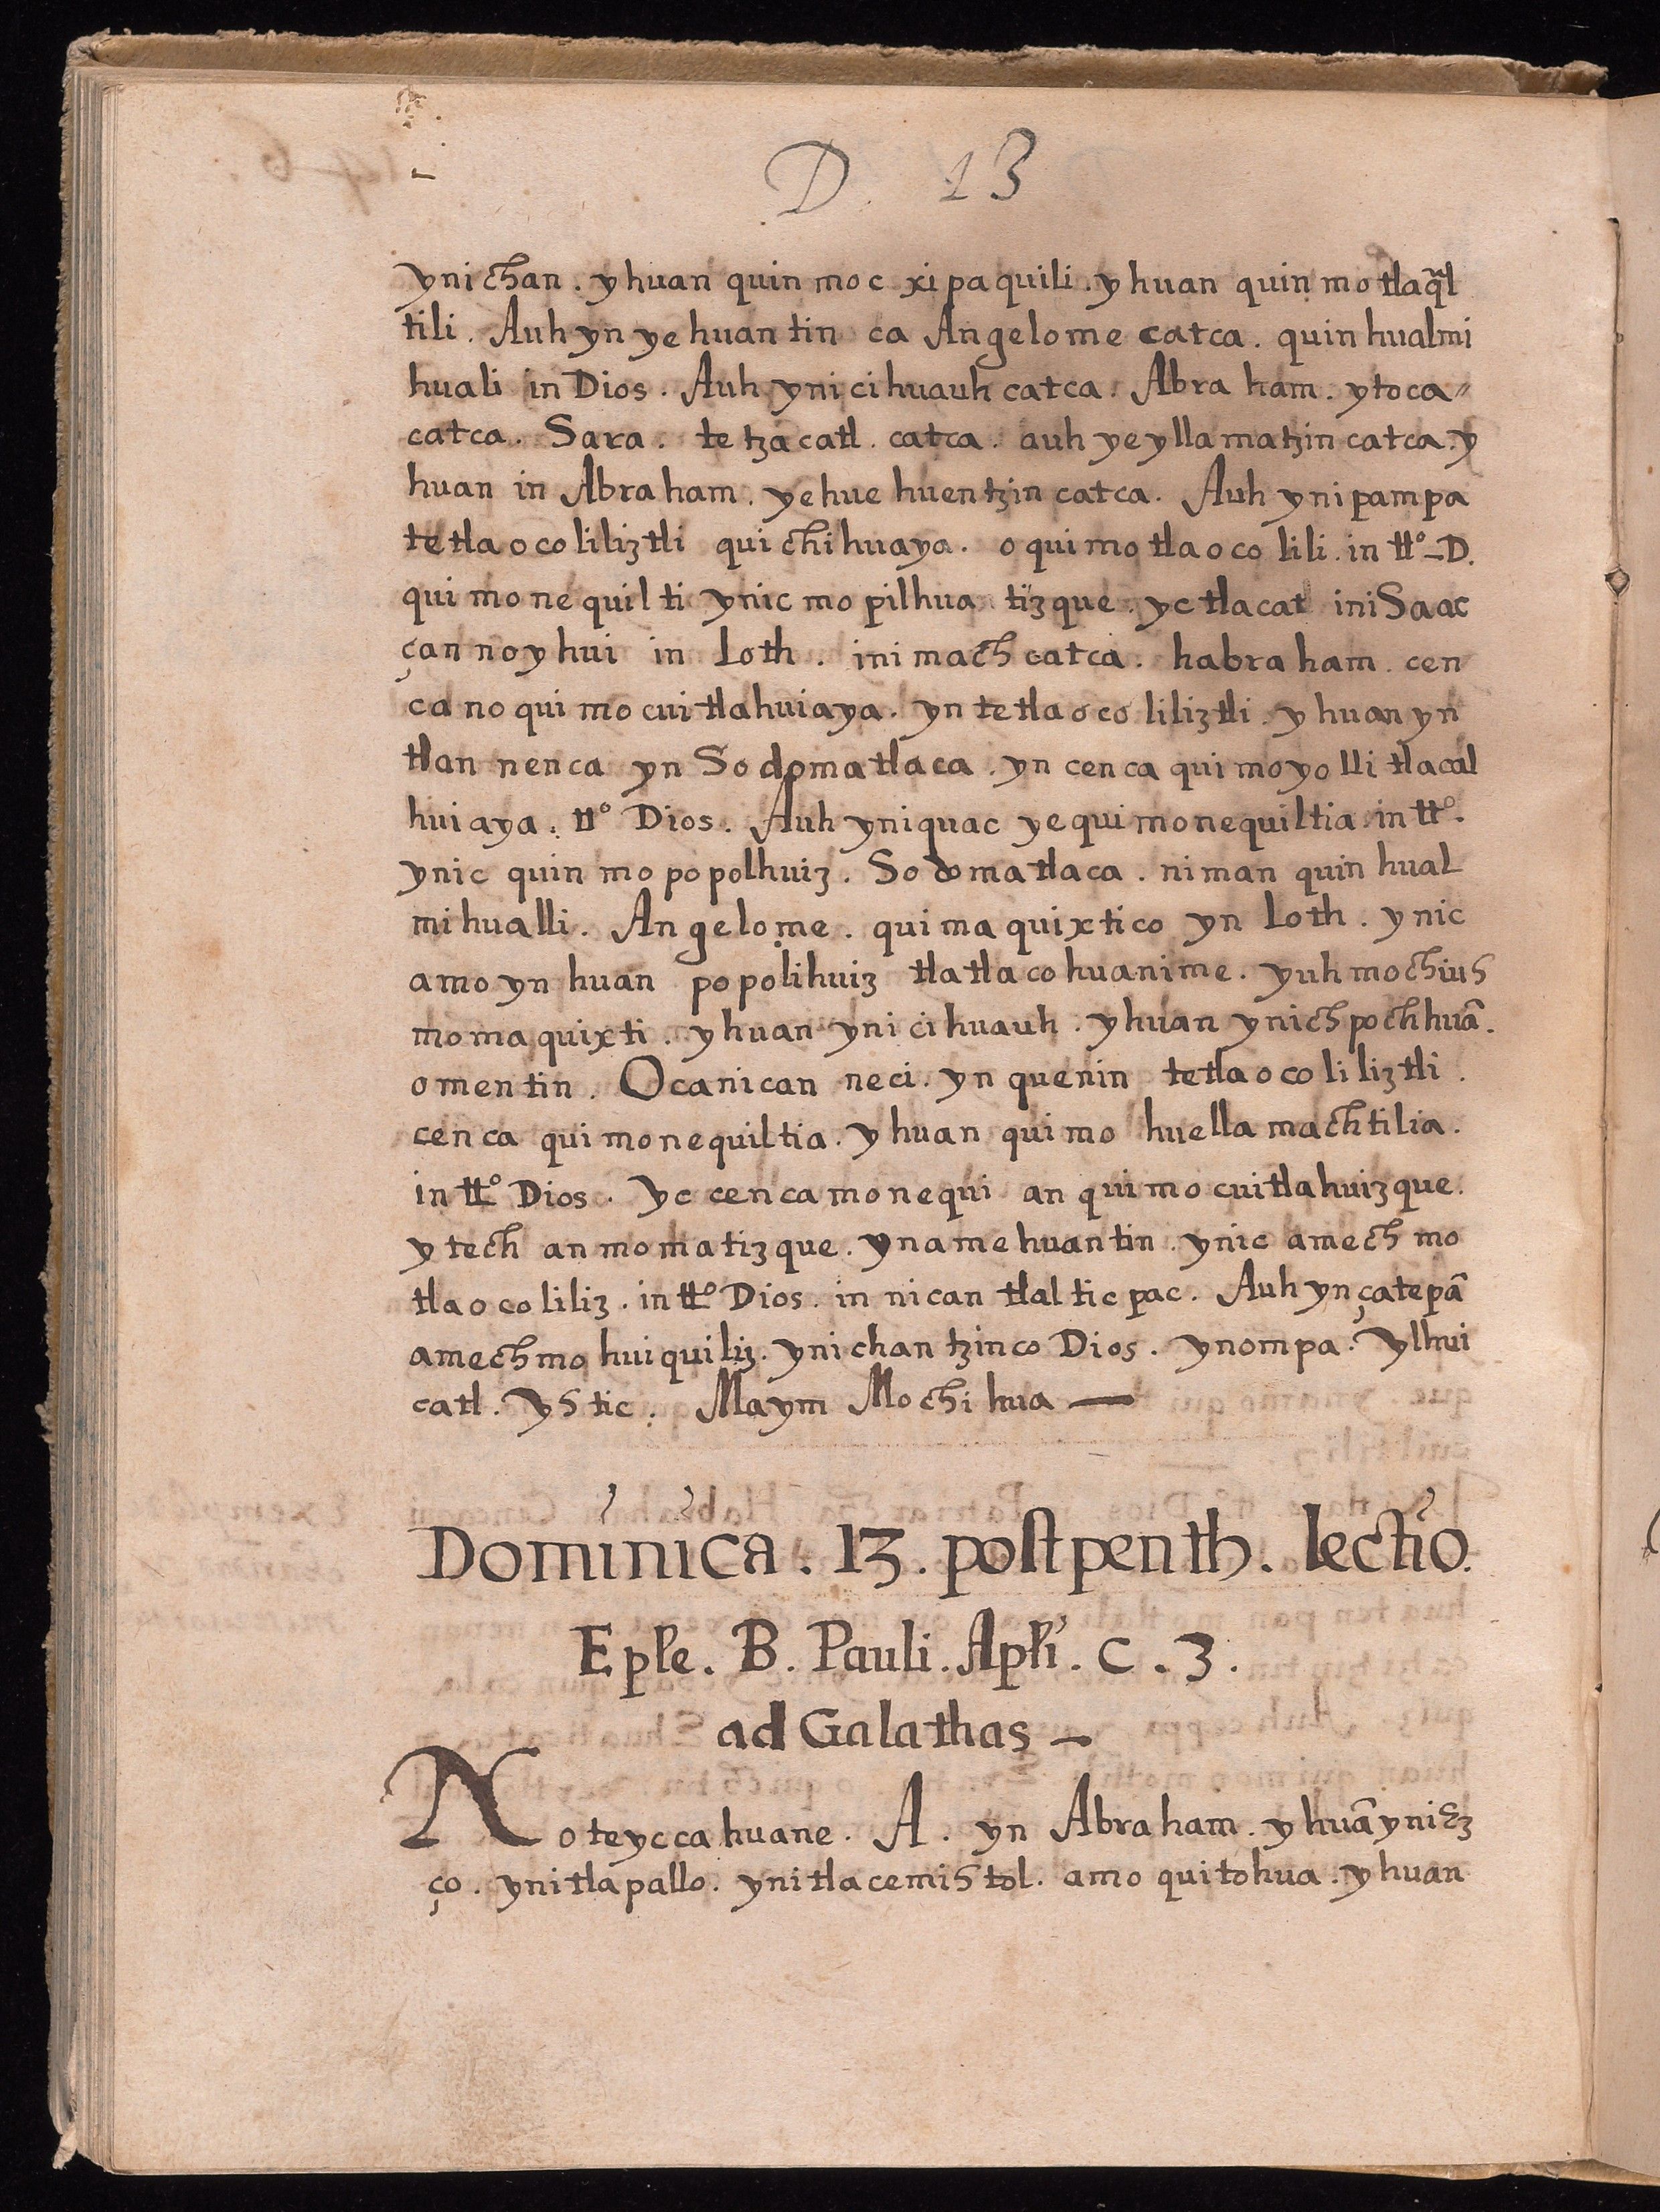 D. 13
ynichan. yhuan quin moc xipaquili. yhuan quin motlaq̃l
tili. Auh yn yehuantin ca Angelome catca. quin hualmi
huali in Dios. Auh ynicihuauh catca. Abraham. ytoca
catca. Sara. tetzacatl. catca. auh yeyllamatzin catca. y
huan in Abraham. yehuehuentzin catca. Auh ynipampa
tetlaocoliliztli quichihuaya. oquimotlaocolili. in ttº. D.
quimonequilti ynic mopilhuatizque. yc tlacat iniSaac
çan noyhui in Loth. inimach catca. habraham. cen
ca no quimocuitlahuiaya. yn tetlaocoliliztli. yhuan yn
tlan nenca yn Sodomatlaca. yn cenca quimoyollitlacal
huiaya. ttº Dios. Auh yniquac yequimonequiltia. in ttº.
ynic quin mopopolhuiz. Sodomatlaca. niman quin hual
mihualli. Angelome. quimaquixtico yn Loth. ynic
amo yn huan popolihuiz tlatlacohuanime. yuh mochiuh
momaquixti. yhuan ynicihuauh. yhuan ynichpochhuã.
omentin. Ocanican neci. yn quenin tetlaocoliliztli.
cenca quimonequiltia. yhuan quimo huellamachtilia.
in ttº Dios. Yc cenca monequi anquimocuitlahuizque.
ytech anmomatizque. ynamehuantin. ynic amechmo
tlaocoliliz. in ttº Dios. in nican tlalticpac. Auh yn çatepã
amechmohuiquiliz. ynichantzinco Dios. ynompa. Ylhui
catl. yhtic. Maym Mochihua —
Dominica. 13. post penth. lectio.
Eple. B. Pauli. Apli. C. 3.
ad Galathas —
Noteyccahuane. A. yn Abraham. yhuã yniez
ço. ynitlapallo. ynitlacemihtol. amo quitohua. yhuan